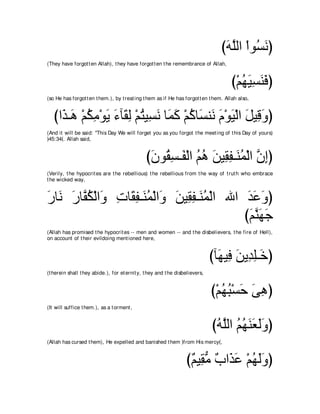 (نَسُوا۟ اللَّهَ)
(They have forgotten Allah), they have forgotten the remembrance of Allah,
(فَنَسِيَهُمْ)
(so He has forgotten them.), by treating them as if He has forgotten them. Allah also,
(وَقِيلَ الْيَوْمَ نَنسَاكُمْ كَمَا نَسِيتُمْ لِقَآءَ يَوْمِكُمْ هَـذَا)
(And it will be said: "This Day We will forget you as you forgot the meeting of this Day of yours) ﴿45:34﴾. Allah said,
(إِنَّ الْمُنَـفِقِينَ هُمُ الْفَـسِقُونَ)
(Verily, the hypocrites are the rebellious) the rebellious from the way of truth who embrace the wicked way,
(وَعَدَ الله الْمُنَـفِقِينَ وَالْمُنَـفِقَاتِ وَالْكُفَّارَ نَارَ جَهَنَّمَ)
(Allah has promised the hypocrites -- men and women -- and the disbelievers, the fire of Hell), on account of their evildoing mentioned here,
(خَـلِدِينَ فِيهَآ)
(therein shall they abide.), for eternity, they and the disbelievers,
(هِىَ حَسْبُهُمْ)
(It will suffice them.), as a torment,
(وَلَعَنَهُمُ اللَّهُ)
(Allah has cursed them), He expelled and banished them ﴿from His mercy﴾,
(وَلَهُمْ عَذَابٌ مُّقِيمٌ)